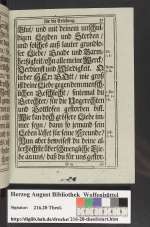 für die Erlösung.
Blut/ und mit deinem unschul-
digen Leiden und Sterben /
und solches auß lauter grundlo-
ser Liebe / Gnade und Barm-
hertzigkeit / ohn alle meine Werck /
Verdienst und Würdigkeit. O
lieber HErr GOtt / wie groß
ist deine Liebe gegen dem mensch-
lichen Geschlecht / daß du
Gerechter / für die Ungerechten
und Gottlosen gestorben bist.
Wie kan doch grössere Liebe im-
mer seyn / dann so jemand sein
Leben lässet für seine Freunde?
Nun aber beweisest du deine
an uns / daß du für uns gestor-
Herzog August Bibliothek Wolfenbüttel
Signatur: 216.28 Theol.
http://diglib.hab.de/drucke/216-28-theol/start.htm